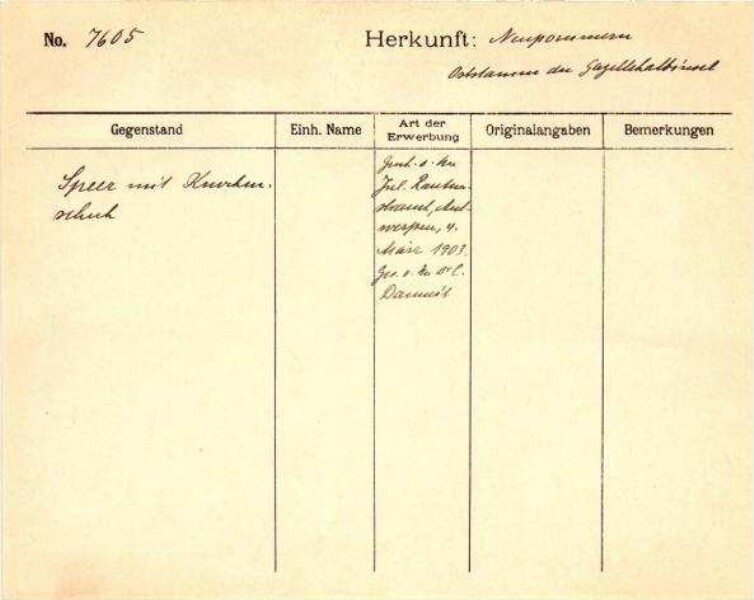 No. 7605
Herkunft: Neupommern
Oststamm der Gazellehalbinsel
Gegenstand
Einh. Name
Art der Erwerbung
Originalangaben
Bemerkungen
Speer mit Knochen-
schuh
Jul. Rauten-
strauch, Ant-
werpen, 4.
März 1903.
Ges. v.